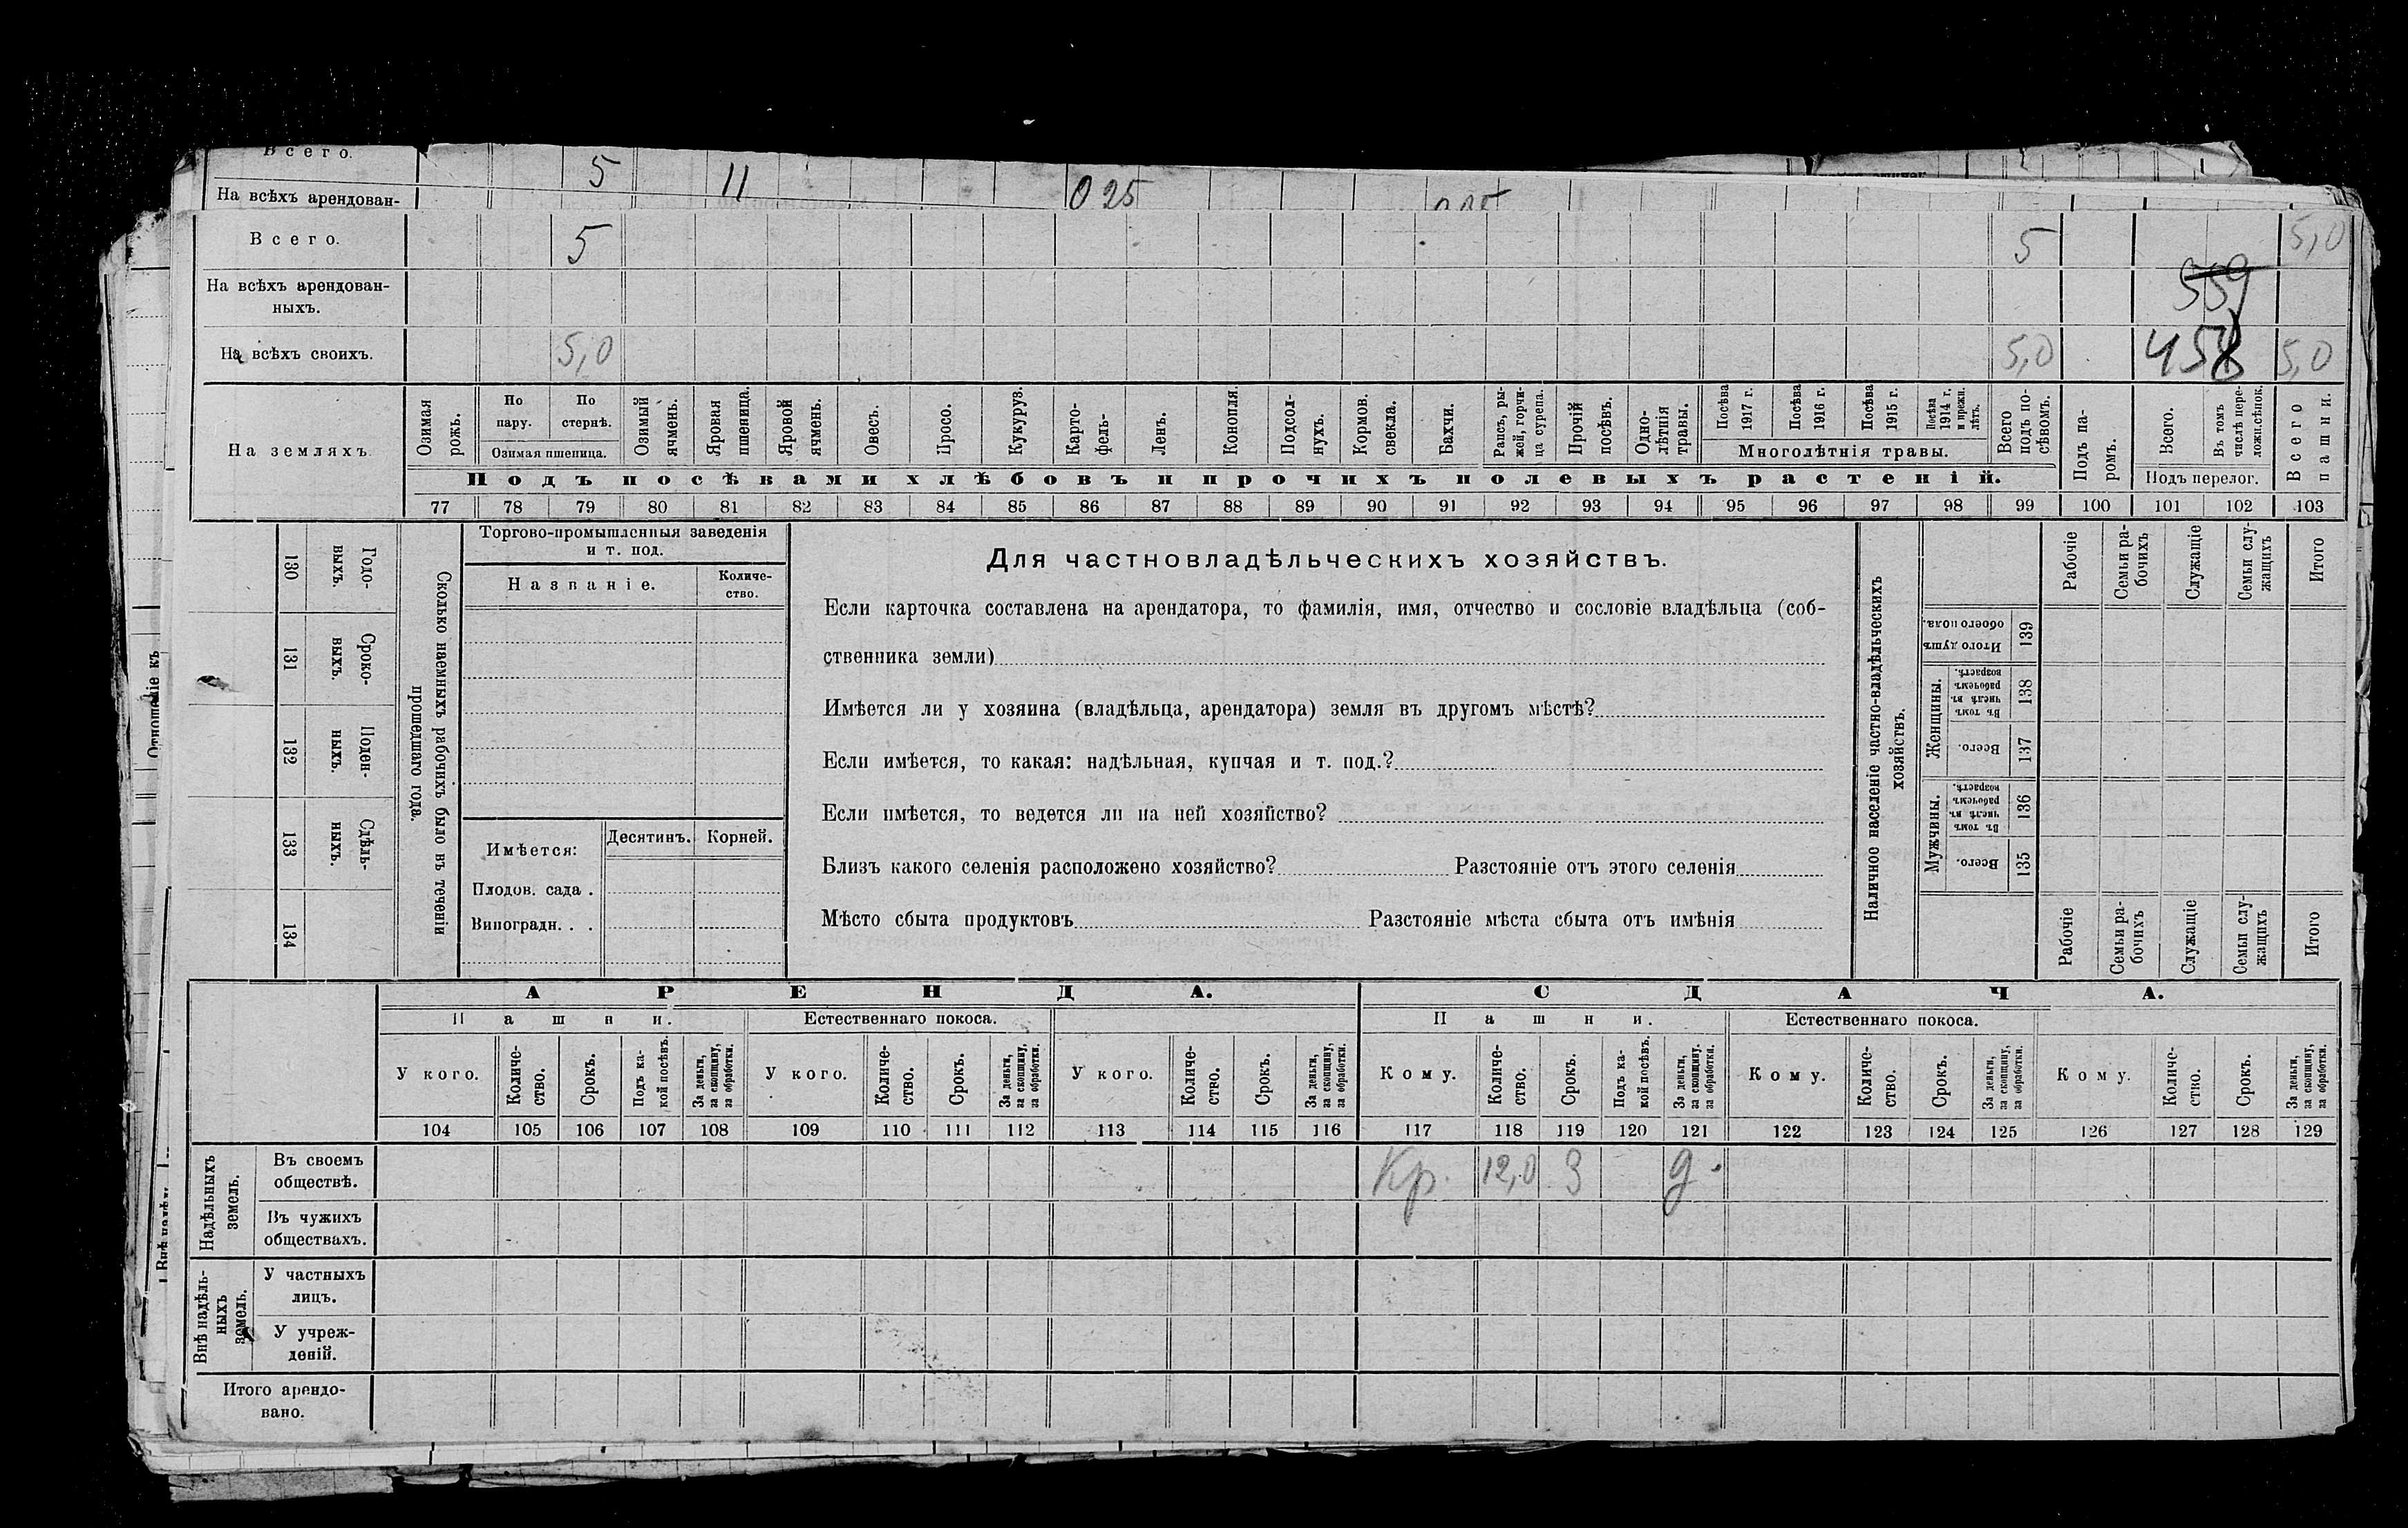 Всего.
5 11 0 25
На всѣхъ арендован-
Всего. 5 5 5,0
На всѣхъ арендован-
ныхъ. 559
На всѣхъ своихъ. 5,0 5,0 458 5,0
На земляхъ
Озимая рожь.
По пару.
По стернѣ.
Озимая пшеница.
Озимый ячмень.
Яровая пшеница.
Яровой ячмень.
Овесъ.
Просо.
Кукуруз.
Карто-
фель-
Ленъ.
Конопля.
Подсол-
нухъ.
Кормов. свекла.
Бахчи.
Рапсъ, ры-
жей, горчи-
ца сурепа.
Прочій посѣвъ.
Одно-
лѣтнія травы.
Посѣва 1917 г.
Посѣва 1916 г.
Посѣва 1915 г.
Посѣва 1914 г. и прежн. лѣтъ.
Многолѣтнія травы.
Всего подъ по-
сѣвомъ.
Подъ па-
ромъ.
Всего.
Въ томъ числѣ пере-
ложн.сѣнок.
Подъ перелог.
Всего пашни.
Подъ посѣвами хлѣбовъ и прочихъ полевыхъ растеній.
77 78 79 80 81 82 83 84 85 86 87 88 89 90 91 92 93 94 95 96 97 98 99 100 101 102 103
130 Годо-
выхъ.
131 Сроко-
выхъ.
132 Поден-
ныхъ.
133 Сдѣль-
ныхъ.
134
Сколько наемныхъ рабочихъ было въ теченіи
прошедшаго года.
Торгово-промышленныя заведенія
и т. под.
Названіе. Количе-
ство.
Имѣется: Десятинъ. Корней.
Плодов. сада .
Виноградн. . .
Для частновладѣльческихъ хозяйствъ.
Если карточка составлена на арендатора, то фамилія, имя, отчество и сословіе владѣльца (соб-
ственника земли)
Имѣется ли у хозяина (владѣльца, арендатора) земля въ другомъ мѣстѣ?
Если имѣется, то какая: надѣльная, купчая и т. под.?
Если имѣется, то ведется ли на ней хозяйство?
Близъ какого селенія расположено хозяйство? Разстояніе отъ этого селенія
Мѣсто сбыта продуктовъ Разстояніе мѣста сбыта отъ имѣнія
Наличное населеніе частно-владѣльческихъ
хозяйствъ.
Рабочіе
Семьи ра-
бочихъ
Служащіе
Семьи слу-
жащихъ
Итого
Итого душъ обоего пола. 139
Женщины.
Въ томъ числѣ въ рабочемъ возрастѣ. 138
Всего. 137
Мужчины.
Въ томъ числѣ въ рабочемъ возрастѣ. 136
Всего. 135
Рабочіе
Семьи ра-
бочихъ
Служащіе
Семьи слу-
жащихъ
Итого
АРЕНДА. СДАЧА.
Пашни. Естественнаго покоса. Пашни. Естественнаго покоса.
У кого.
Количе-
ство.
Срокъ.
Подъ ка-
кой посѣвъ.
За деньги,
за скопщину,
за обработки.
У кого.
Количе-
ство.
Срокъ.
За деньги,
за скопщину,
за обработки.
У кого.
Количе-
ство.
Срокъ.
За деньги,
за скопщину,
за обработки.
Кому.
Количе-
ство.
Срокъ.
Подъ ка-
кой посѣвъ.
За деньги,
за скопщину.
за обработки.
Кому.
Количе-
ство.
Срокъ.
За деньги,
за скопщину,
за обработки.
Кому.
Количе-
ство.
Срокъ.
За деньги,
за скопщину,
за обработки.
104 105 106 107 108 109 110 111 112 113 114 115 116 117 118 119 120 121 122 123 124 125 126 127 128 129
Надѣльныхъ
земель.
Въ своемъ
обществѣ. Кр. 12,0 3 д.
Въ чужихъ
обществахъ.
Внѣ надѣль-
ныхъ
земель.
У частныхъ
лицъ.
У учреж-
деній.
Итого арендо-
вано.
Отношеніе къ